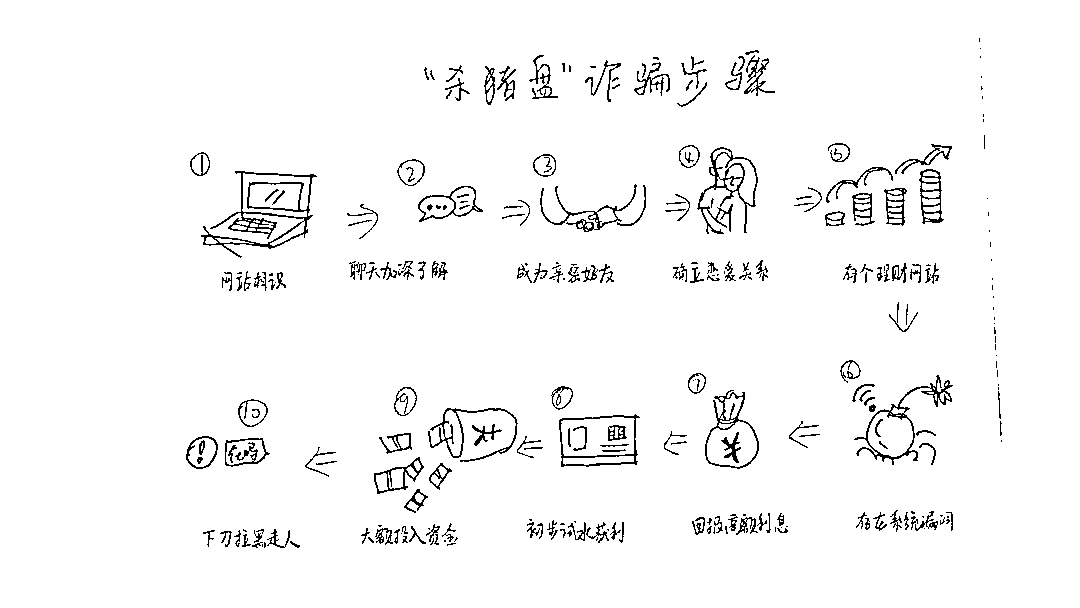 “杀猪盘”诈骗步骤
①
网站相识
②
聊天加深了解
③
成为亲密好友
④
确立恋爱关系
⑤
有个理财网站
⑥
存在系统漏洞
⑦
¥
回报高额利息
⑧
初步试水获利
⑨
大额投入资金
⑩
!
下刀拉黑走人